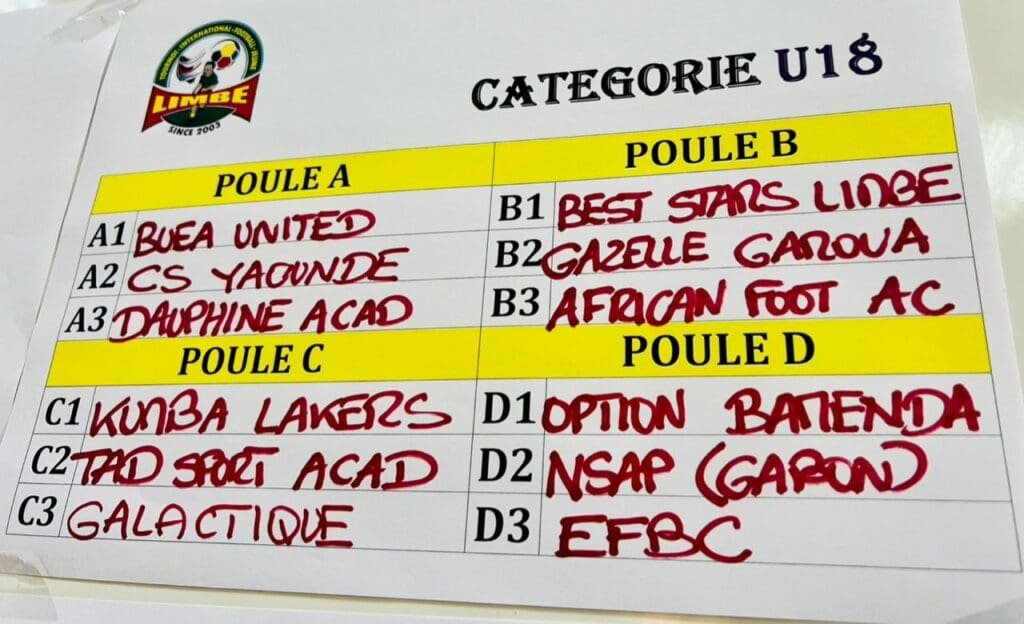 TOURNOI INTERNATIONAL FOOTBALL JEUNE
LIMBE
SINCE 2003
CATEGORIE U18
POULE A
A1 BUEA UNITED
A2 CS YAOUNDE
A3 DAUPHINE ACAD
POULE B
B1 BEST STARS LIMBE
B2 GAZELLE GAROUA
B3 AFRICAN FOOT AC
POULE C
C1 KUMBA LAKERS
C2 TAD SPORT ACAD
C3 GALACTIQUE
POULE D
D1 OPTION BAMENDA
D2 NSAP (GABON)
D3 EFBC